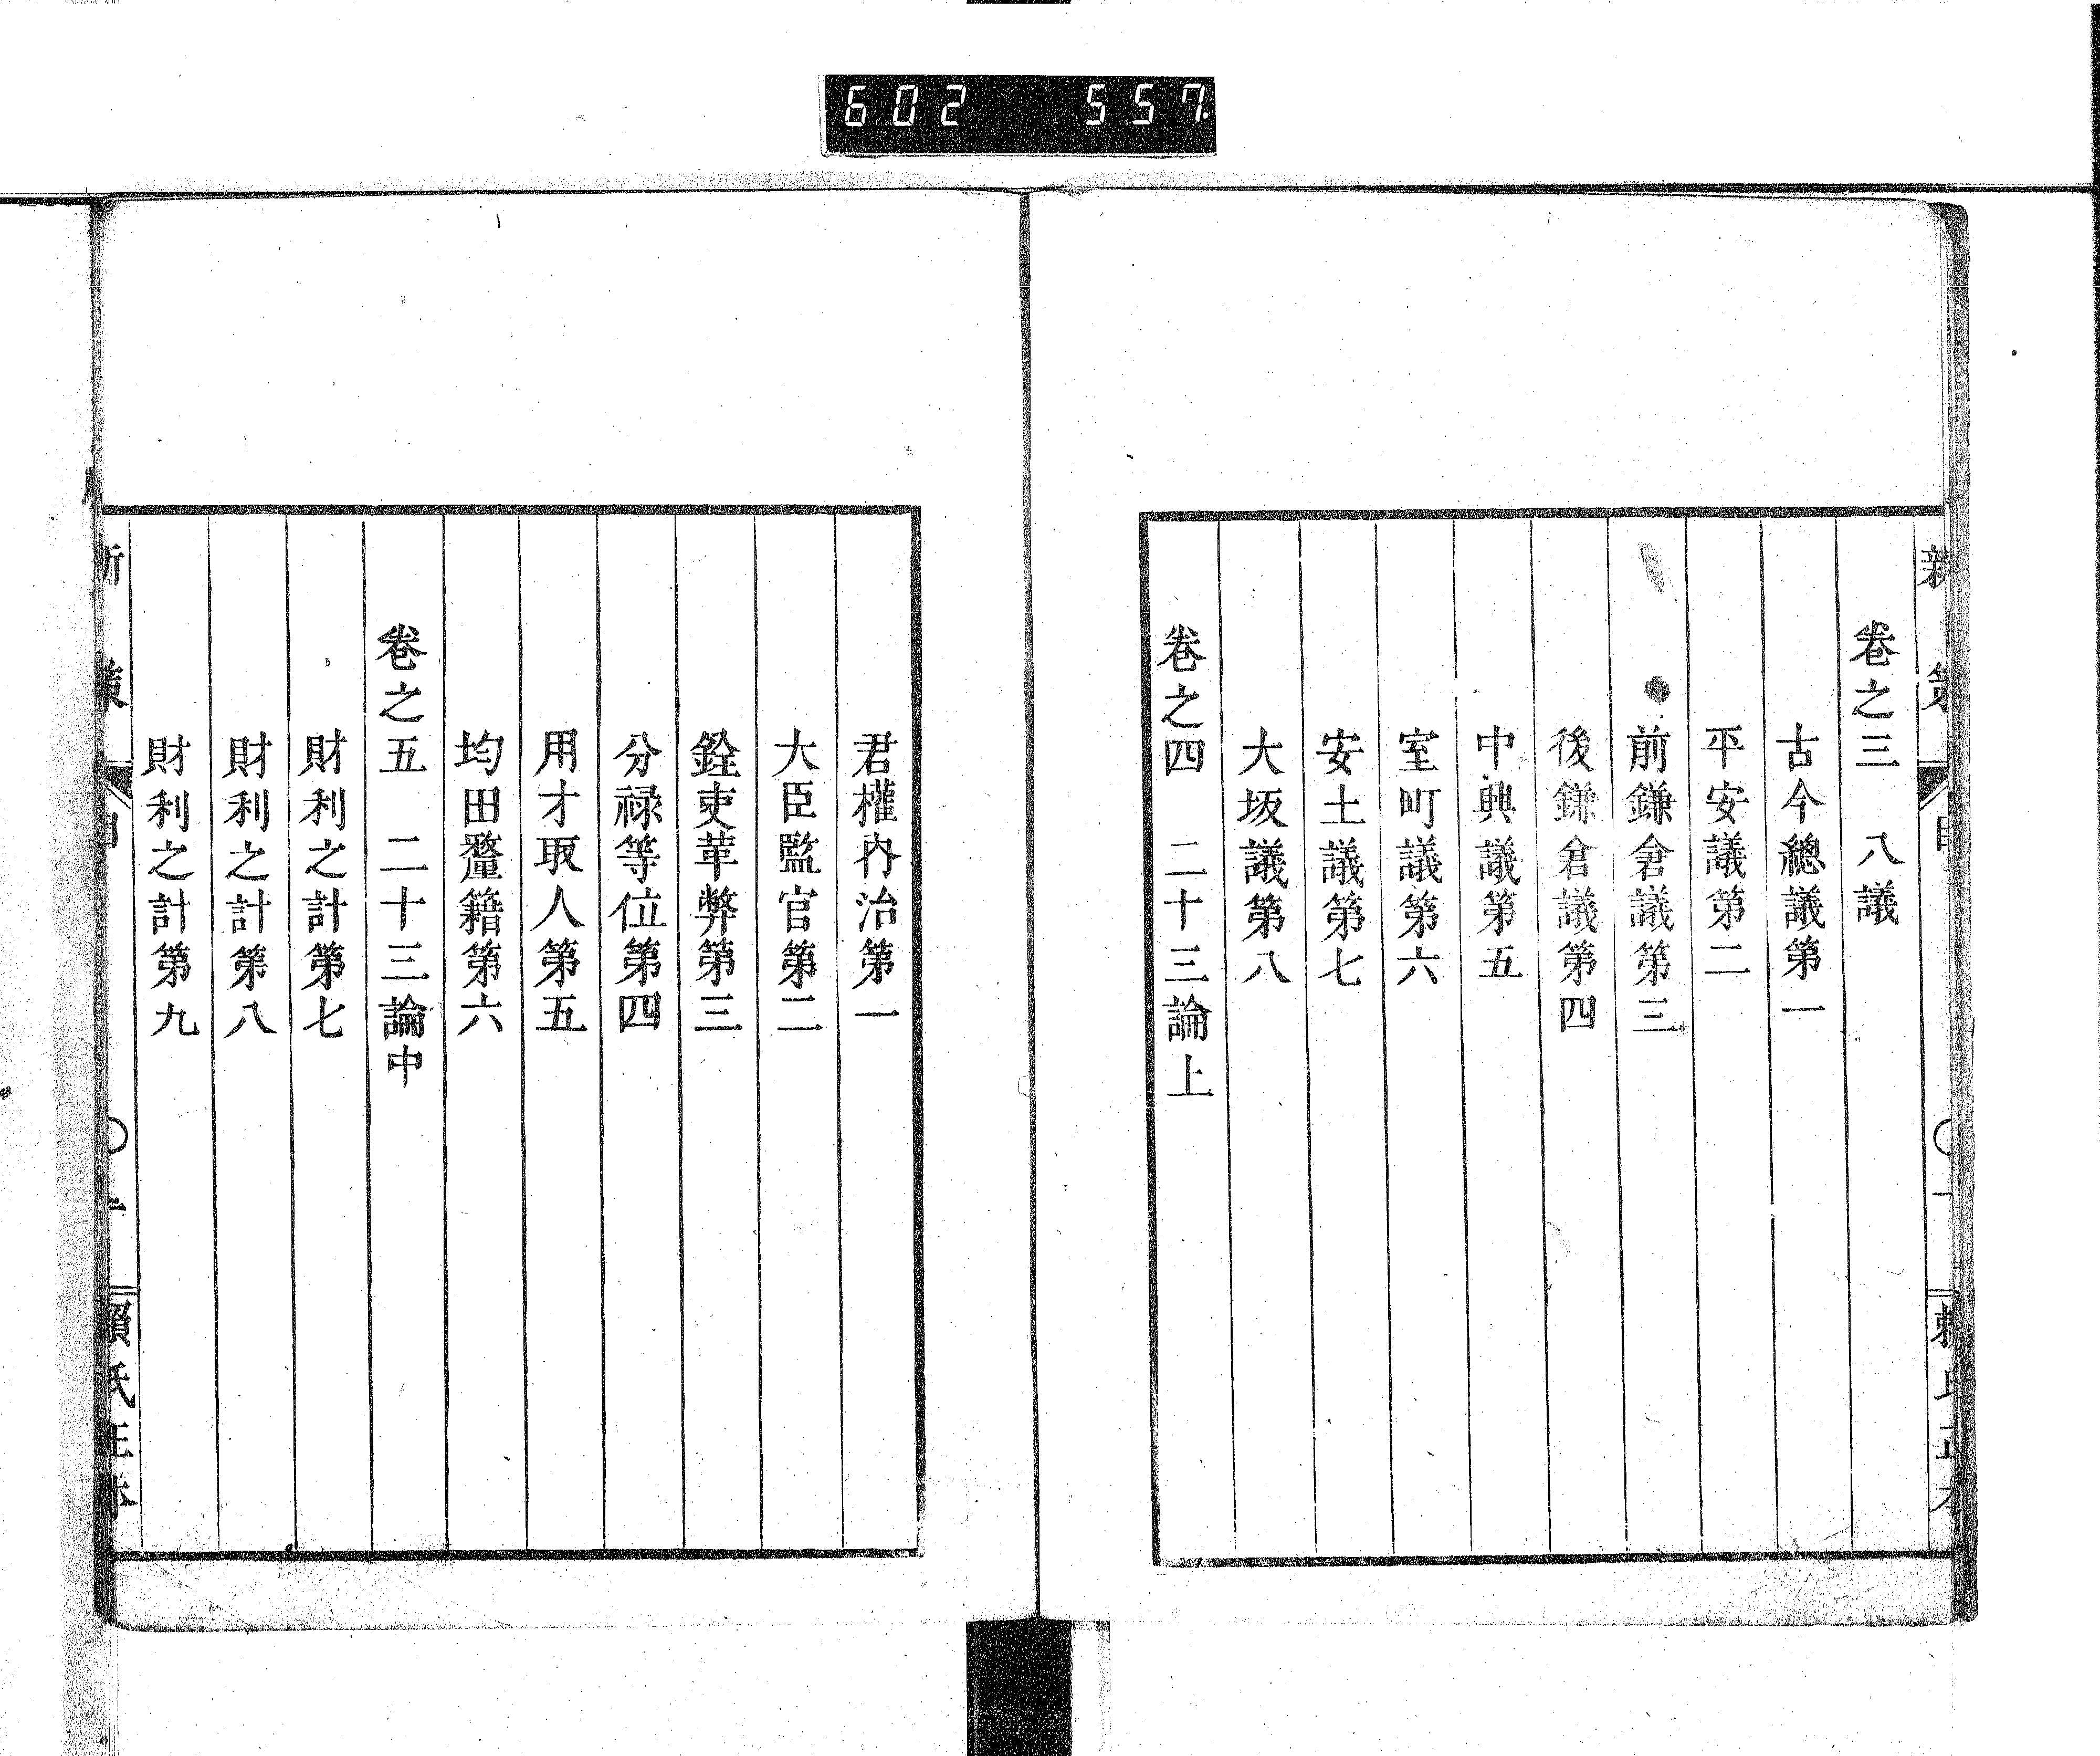 602 557.
卷之三 八議
古今總議第一
平安議第二
前鎌倉議第三
後鎌倉議第四
中興議第五
室町議第六
安土議第七
大坂議第八
卷之四 二十三論上
君權內治第一
大臣監官第二
銓吏革弊第三
分祿等位第四
用才取人第五
均田釐籍第六
卷之五 二十三論中
財利之計第七
財利之計第八
財利之計第九